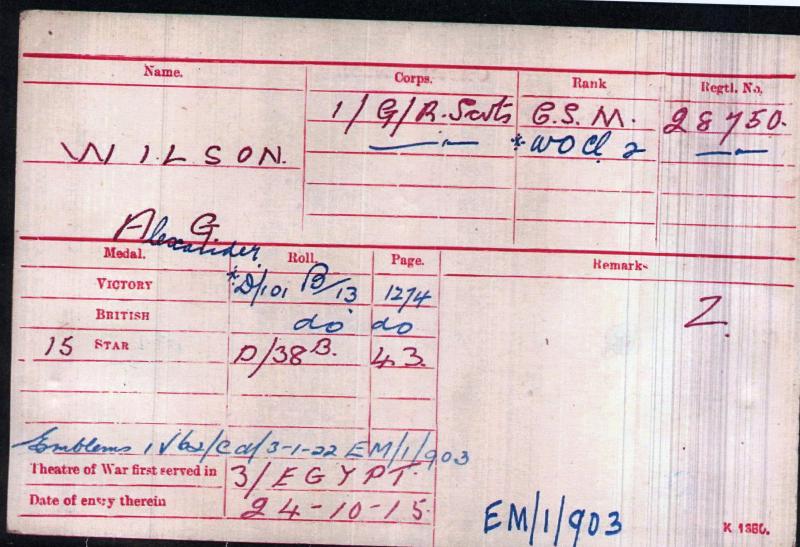 Name. Corps. Rank Regtl. No.
1/G/R. Scots C.S.M. 28750.
WILSON. —"— *WO Cl 2 —"—
A G.
Alexander.
Medal. Roll. Page. Remarks
VICTORY *D/101 B/13 1274
BRITISH do do Z.
15 STAR D/38B. 43.
Emblems IV/62/Cd/3-1-22 EM/1/903
Theatre of War first served in 3/EGYPT.
Date of entry therein 24-10-15.
EM/1/903
K 1380.